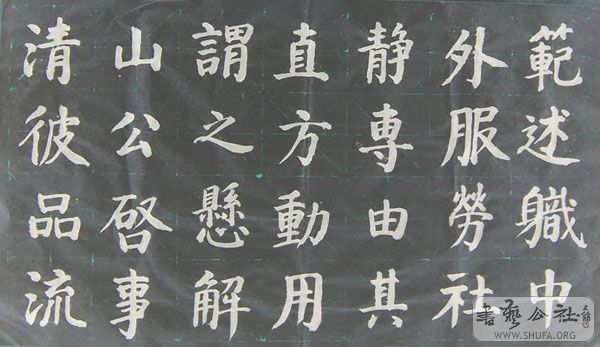 範述職中
外服勞社
静専由其
直方動用
謂之懸解
山公啓事
清彼品流
書藝公社
WWW.SHUFA.ORG